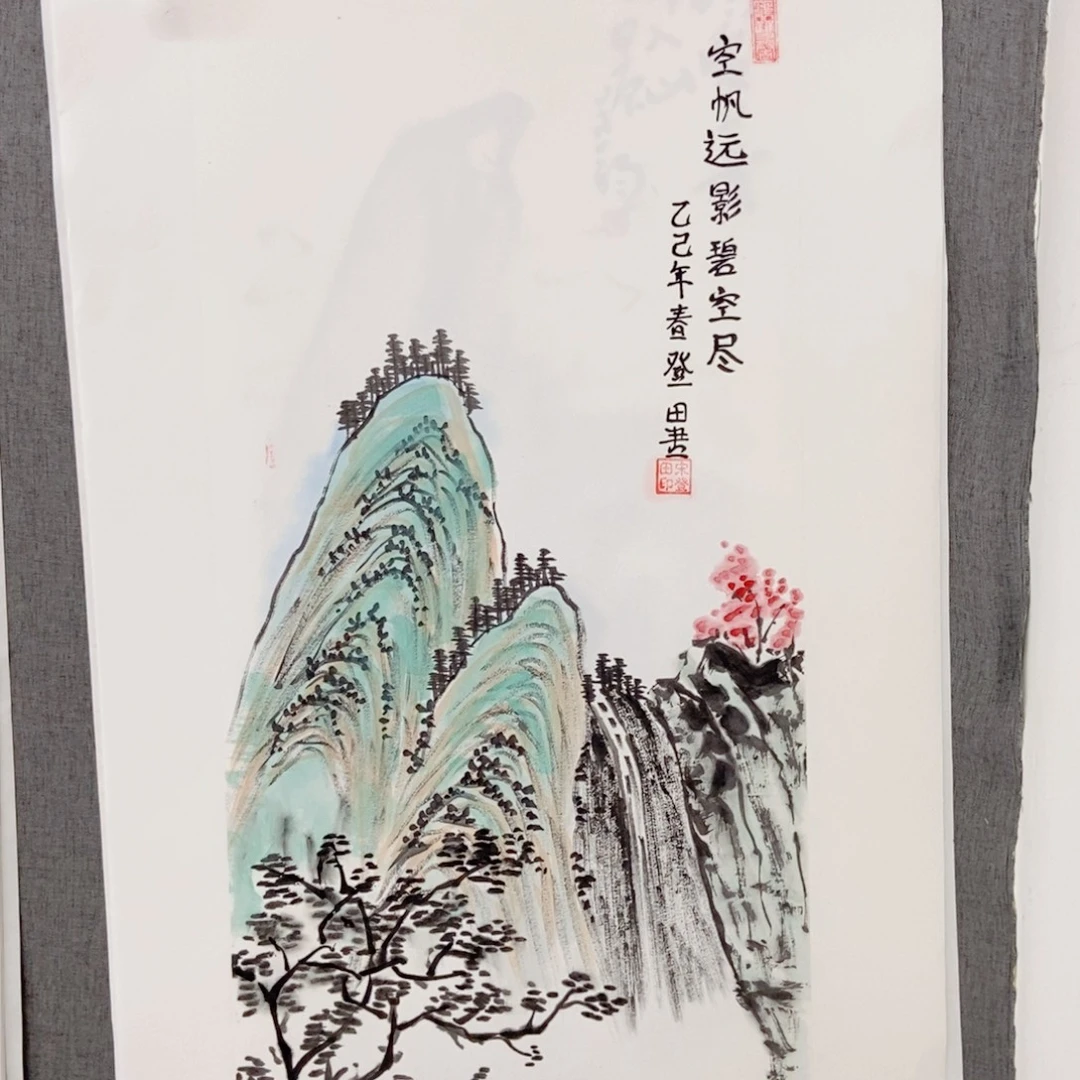 空帆远影碧空尽
乙己年春登田书